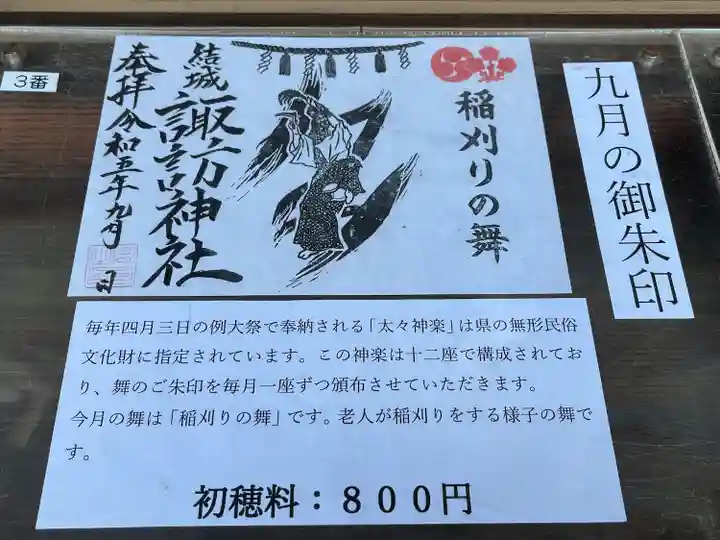 3番
九月の御朱印
稲刈りの舞
結城
諏訪神社
奉拝 令和五年九月 日
毎年四月三日の例大祭で奉納される「太々神楽」は県の無形民俗
文化財に指定されています。この神楽は十二座で構成されてお
り、舞のご朱印を毎月一座ずつ頒布させていただきます。
今月の舞は「稲刈りの舞」です。老人が稲刈りをする様子の舞で
す。
初穂料：８００円